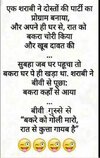 एक शराबी ने दोस्तों की पार्टी का
प्रोग्राम बनाया,
और अपने ही घर से, रात को
बकरा चोरी किया
और खूब दावत की
...
सुबह जब घर पहूचा तो
बकरा घर पे ही खड़ा था. शराबी ने
बीवी से पूछा:
बकरा कहाँ से आया
...
बीवी गुस्से से
"बकरे को गोली मारो,
रात से कुत्ता गायब है"